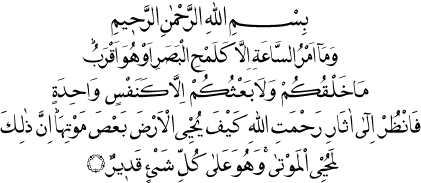 بِسْمِ اللهِ الرَّحْمٰنِ الرَّحِيْمِ
وَمَآ اَمْرُ السَّاعَةِ اِلَّا كَلَمْحِ الْبَصَرِ اَوْ هُوَ اَقْرَبُ ؕ
مَا خَلْقُكُمْ وَلَا بَعْثُكُمْ اِلَّا كَنَفْسٍ وَاحِدَةٍ
فَانْظُرْ اِلٰٓى اٰثَارِ رَحْمَتِ اللهِ كَيْفَ يُحْيِى الْاَرْضَ بَعْضَ مَوْتِهَا ؕ اِنَّ ذٰلِكَ
لَمُحْيِى الْمَوْتٰى ۚ وَهُوَ عَلٰى كُلِّ شَىْءٍ قَدِيْرٌ ۝